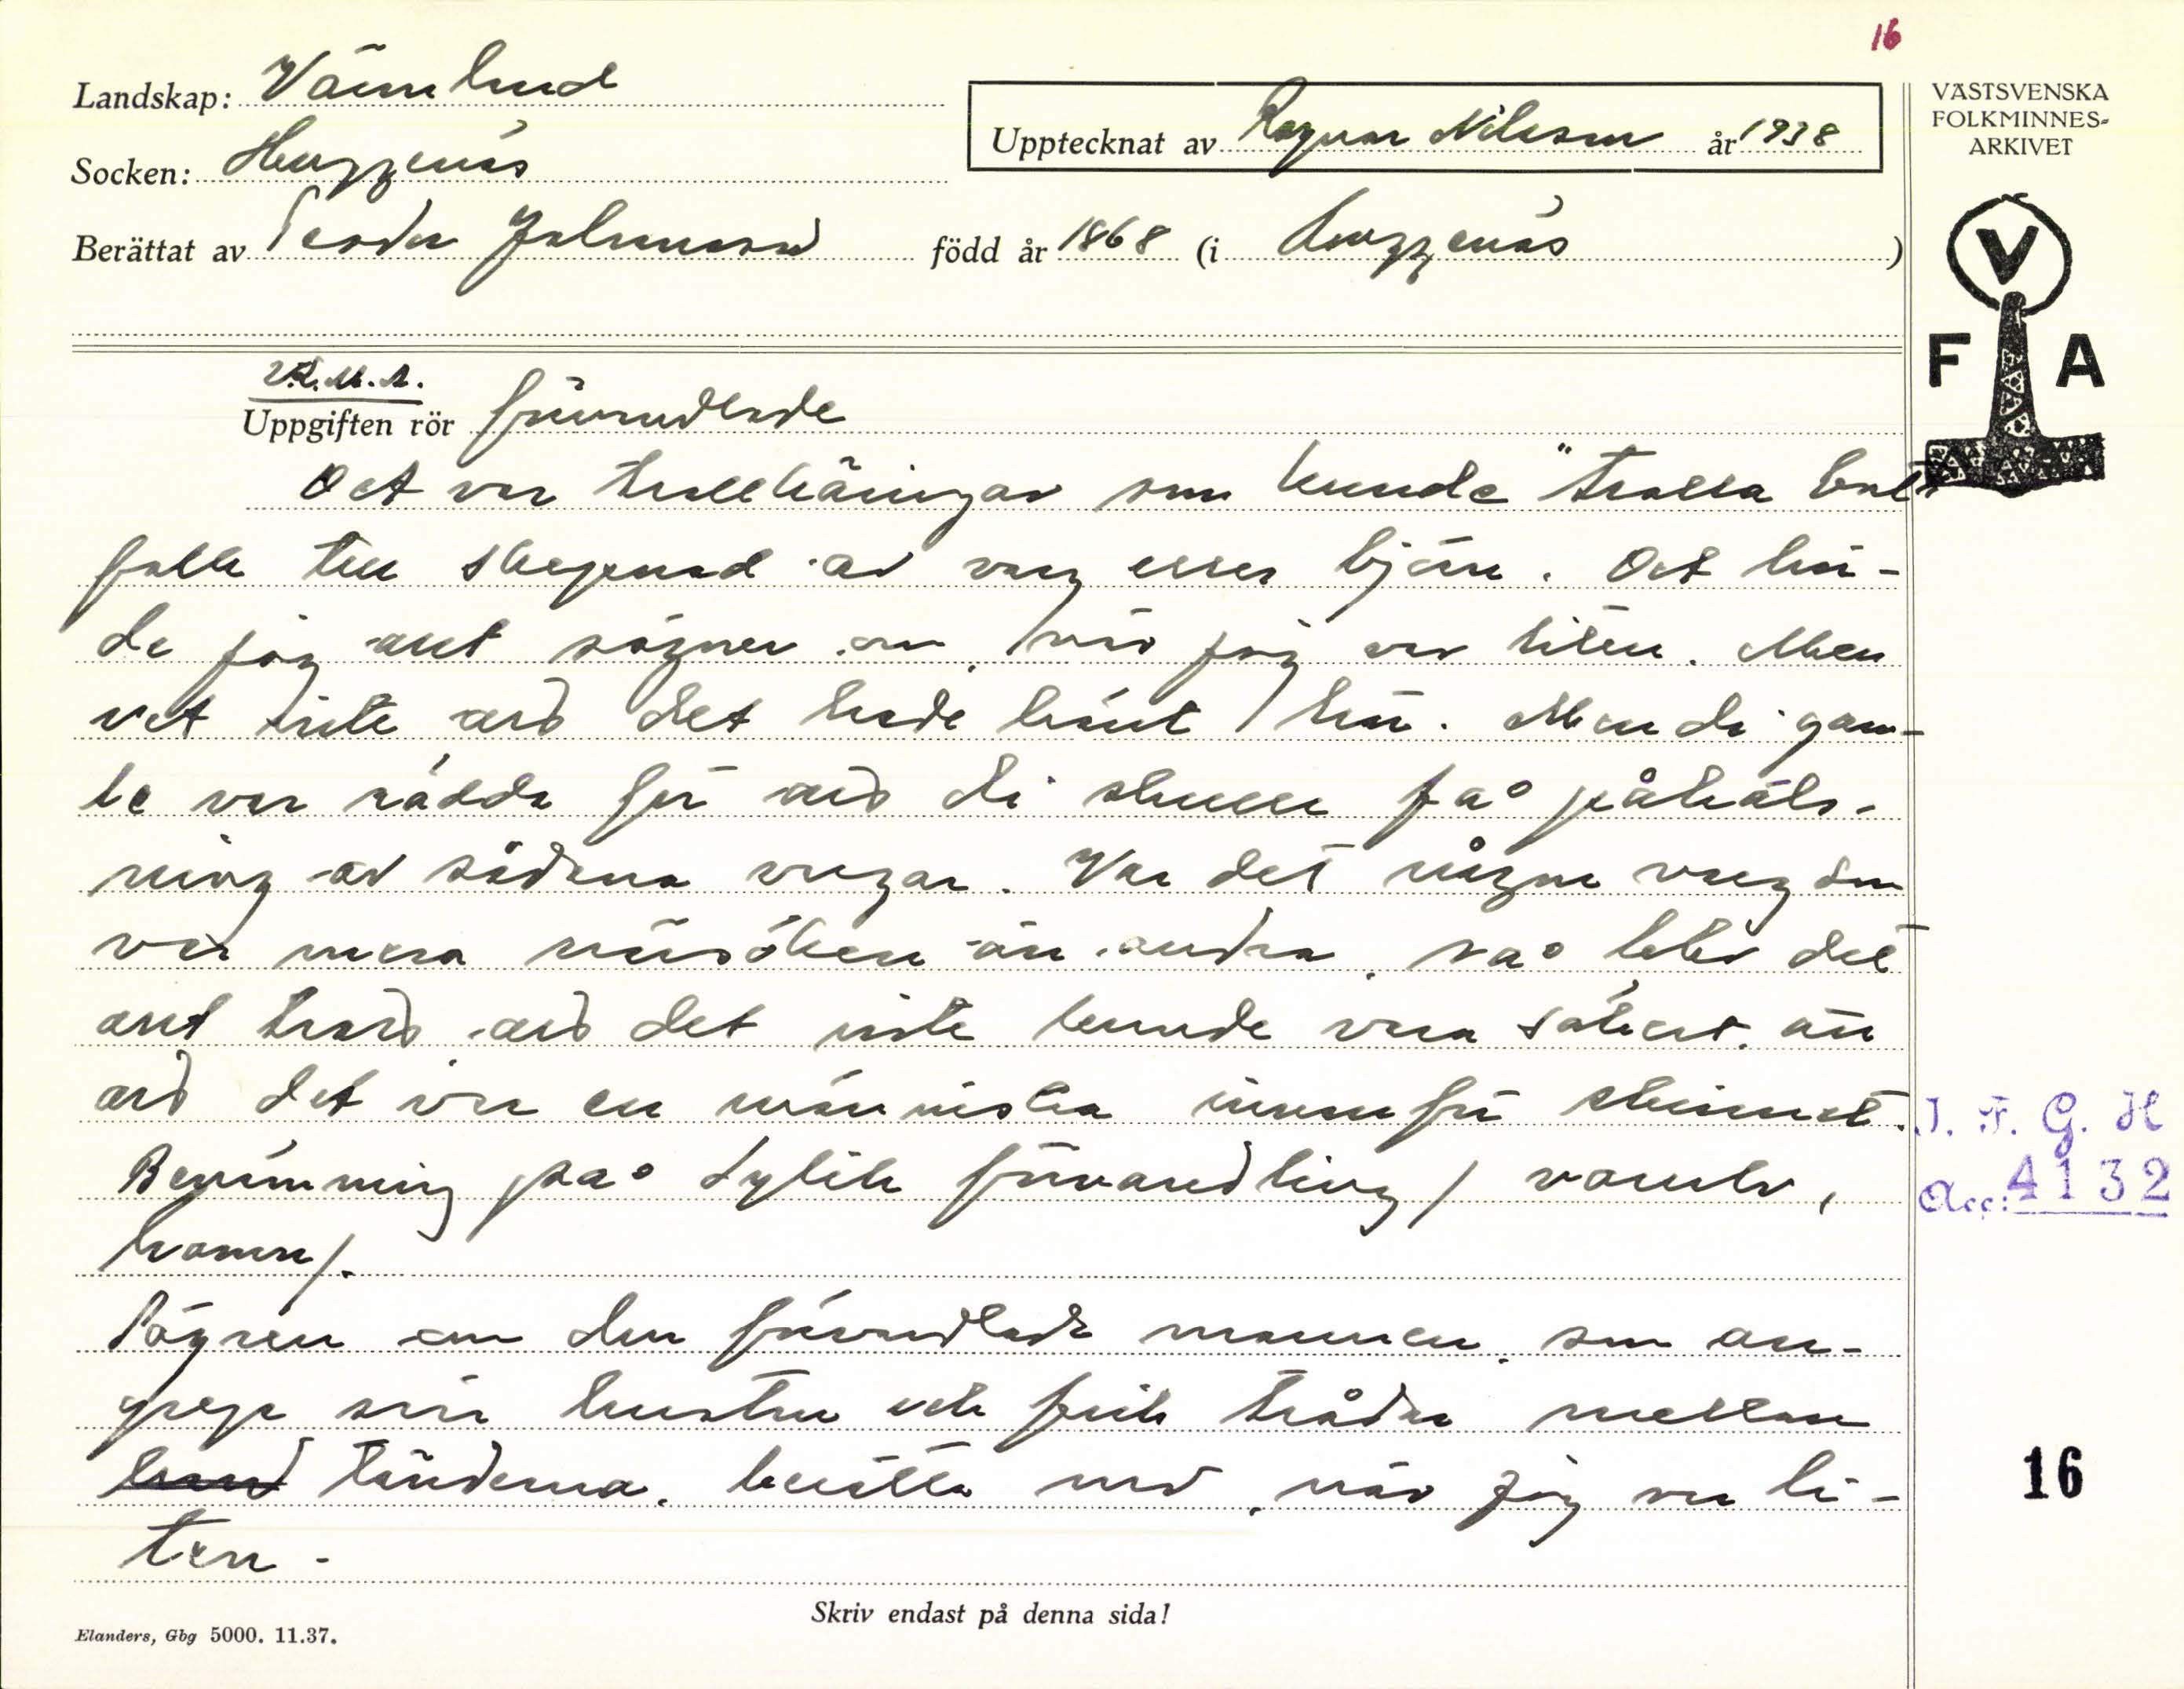 16
Landskap: Värmland
VÄSTSVENSKA
FOLKMINNES=
ARKIVET
Upptecknat av Ragnar Nilsson år 1938
Socken: Huggenäs
Berättat av Teodor Johansson född år 1868 (i Huggenäs )
V
F A
V.F.M.A.
Uppgiften rör förvandlade
Det var trollkäringar som kunde "trolla bort"
folk till skepnad av varg eller björn. Det hör-
de jag ant sägner om, när jag var liten. Men
vet inte ard det hade hänt här. Men di gam-
le var rädda för ard di skulle få påhäls-
ning av sådana vargar. Var det någon varg som
var mera närsöken än andra, så blev det
ant trard ard det inte kunde vara säkert, än
ard det var en människa innanför skinnet.
Benämning på dylik förvandling / varulv,
hamn /.
Sägnen om den förvandlade mannen, som an-
grep sin hustru och fick trådar mellan
tänderna, berätta mor, när jag var li-
ten -
I. F. G. H
Acc: 4132
16
Skriv endast på denna sida!
Elanders, Gbg 5000. 11.37.